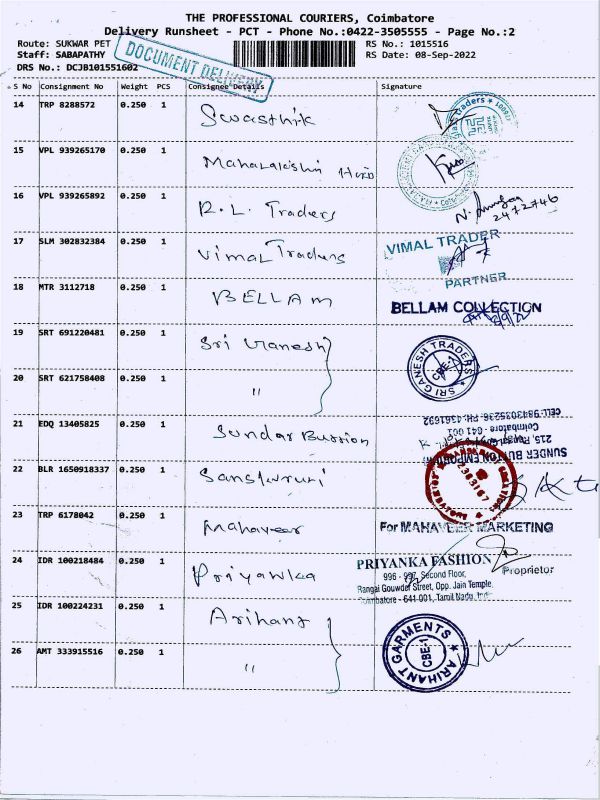 THE PROFESSIONAL COURIERS, Coimbatore
Delivery Runsheet - PCT - Phone No.:0422-3505555 - Page No.:2
Route: SUKWAR PET
RS No.: 1015516
Staff: SABAPATHY
RS Date: 08-Sep-2022
DRS No.: DCJB101551602
DOCUMENT DELIVERY
S No Consignment No Weight PCS Consignee Details Signature
14 TRP 8288572 0.250 1 Swasthik
15 VPL 939265170 0.250 1 Mahalakshmi
16 VPL 939265892 0.250 1 R.L. Traders
2472746
17 SLM 302832384 0.250 1 Vimal Traders
VIMAL TRADER
PARTNER
18 MTR 3112718 0.250 1 BELLAM
BELLAM COLLECTION
19 SRT 691220481 0.250 1 Sri Ganesh
SRI GANESH TRADERS
CBE-1
20 SRT 621758408 0.250 1 "
21 EDQ 13405825 0.250 1 Sundar Button
SUNDER BUTTON EMPORIUM
Coimbatore - 641 001
CELL: 9843035236 PH: 4361692
22 BLR 1650918337 0.250 1
23 TRP 6178042 0.250 1 Mahaveer
For MAHAVEER MARKETING
Proprietor
24 IDR 100218484 0.250 1 Priyanka
PRIYANKA FASHION
996 - 997, Second Floor,
Rangai Gowder Street, Opp. Jain Temple,
Coimbatore - 641 001, Tamil Nadu,
25 IDR 100224231 0.250 1 Arihant
ARIHANT GARMENTS
CBE-1
26 AMT 333915516 0.250 1 "